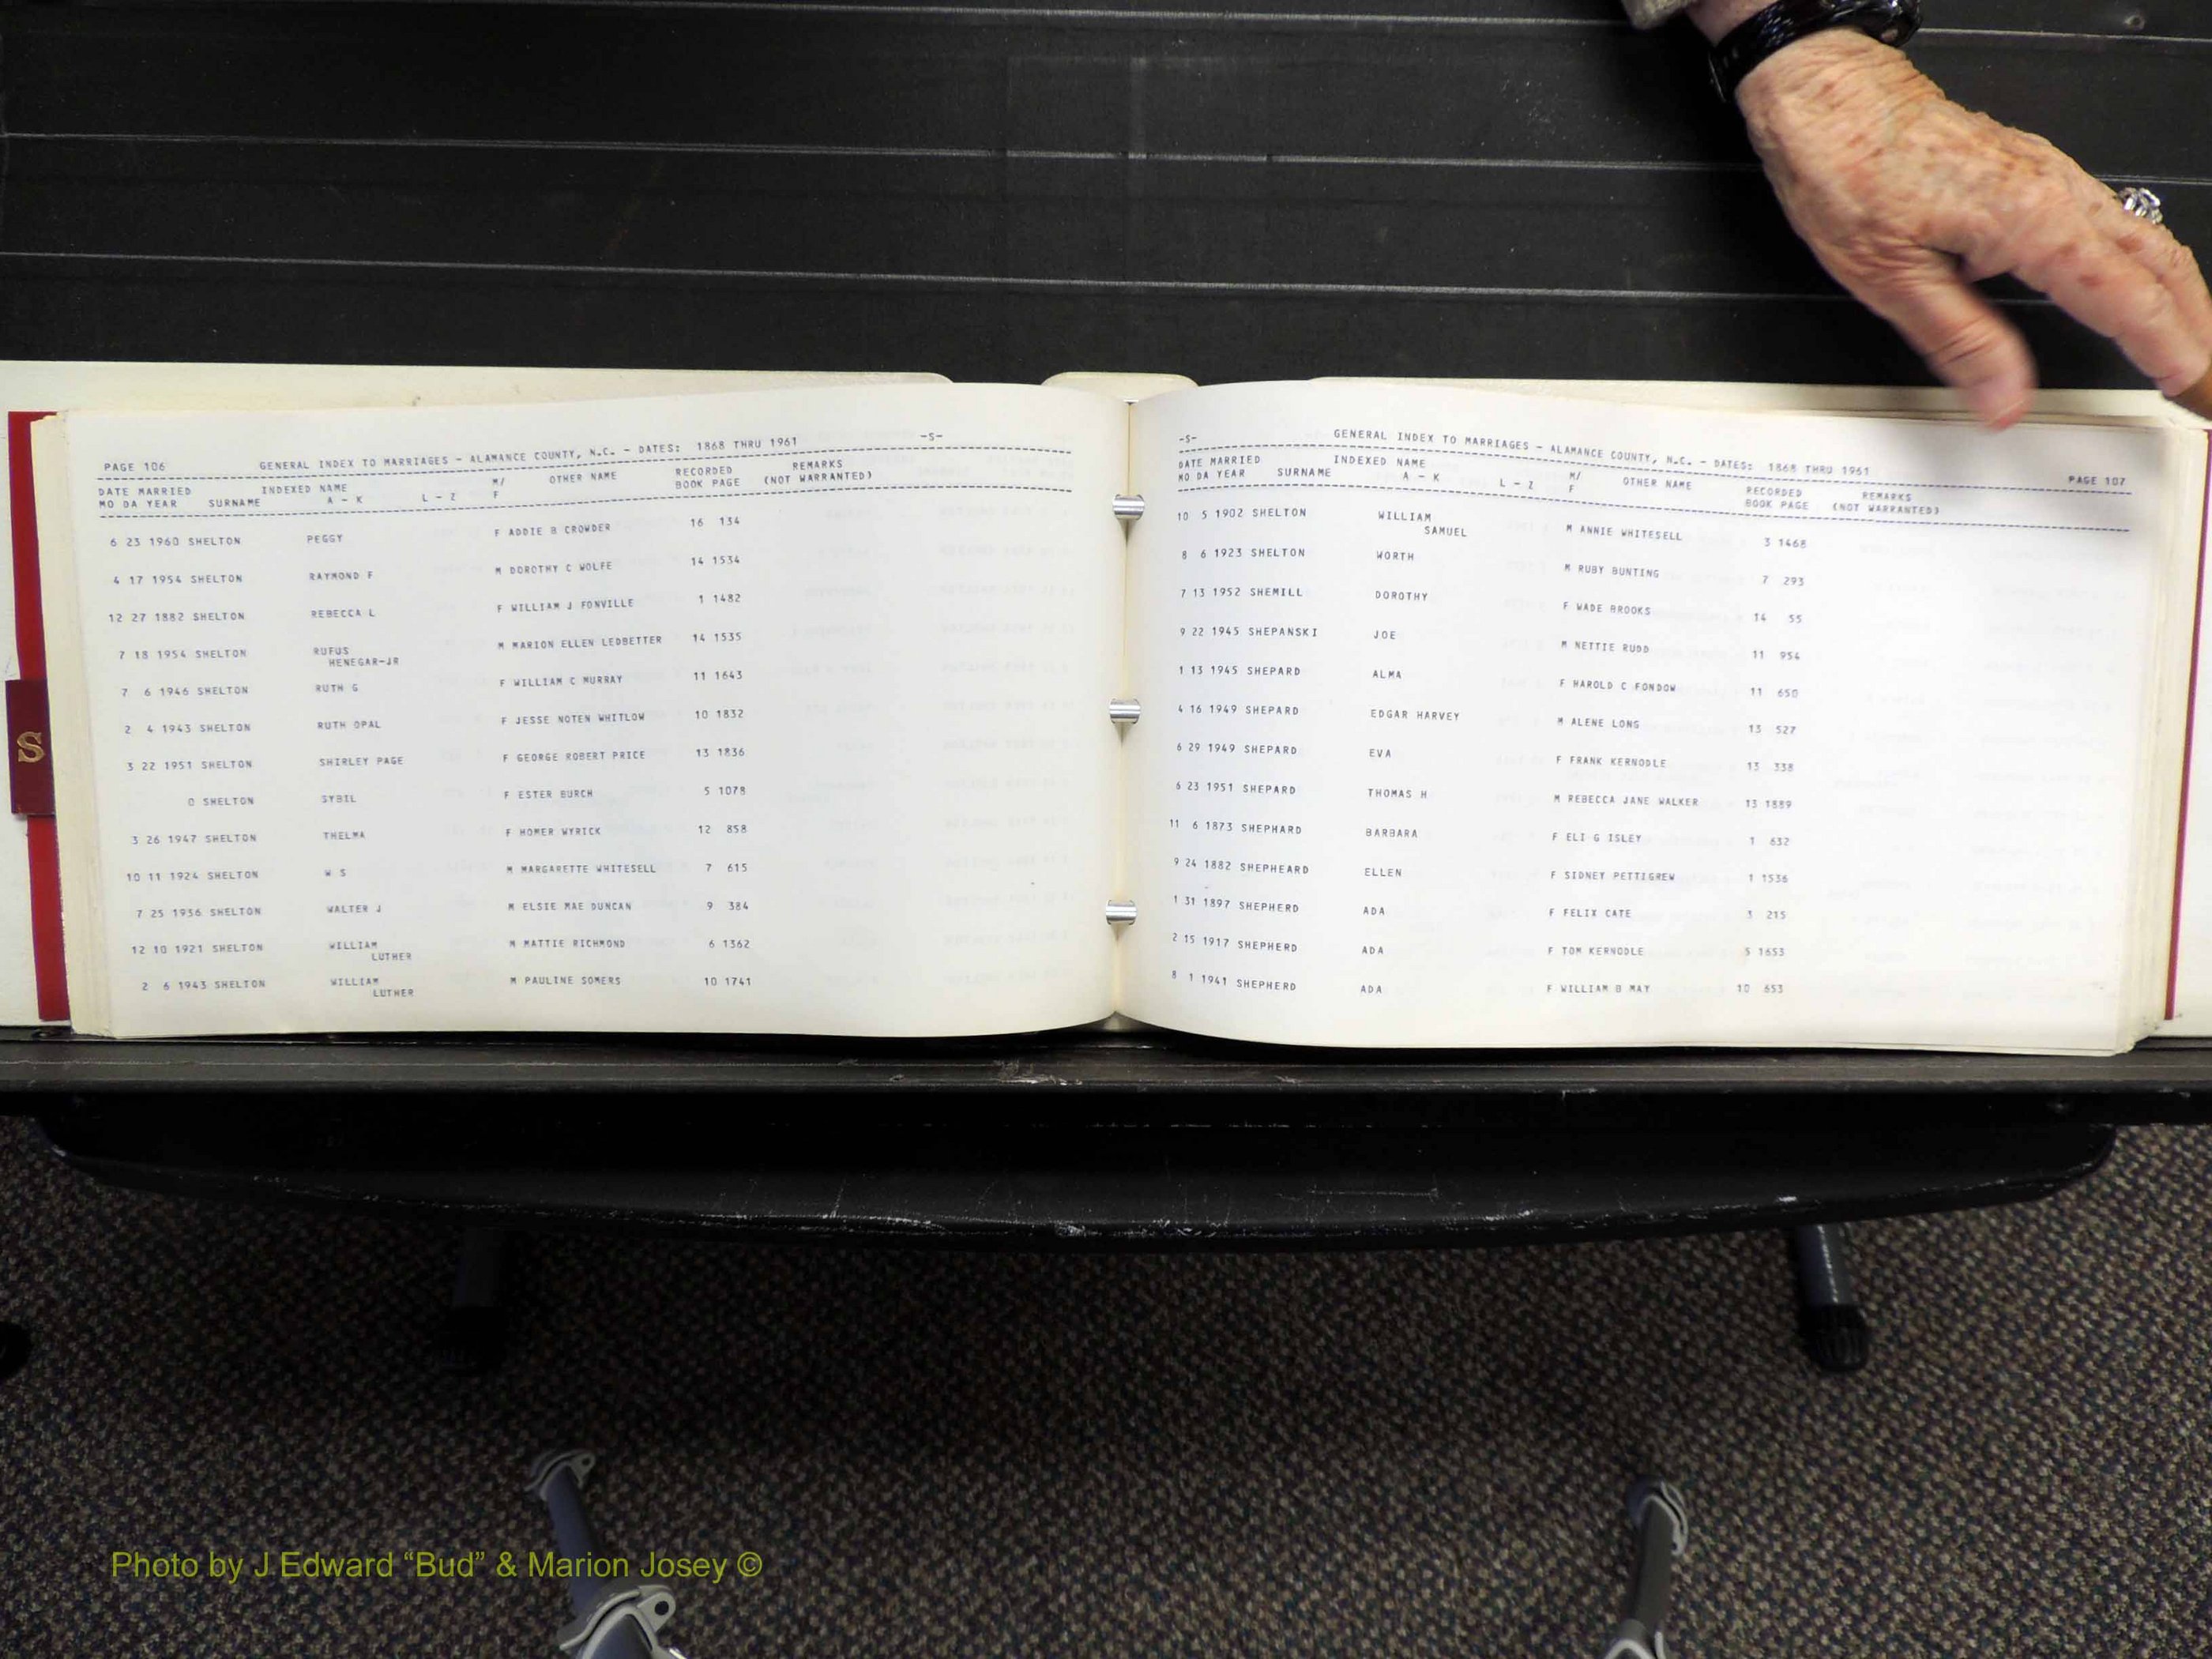 S
PAGE 106 GENERAL INDEX TO MARRIAGES - ALAMANCE COUNTY, N.C. - DATES: 1868 THRU 1961 -S-
DATE MARRIED INDEXED NAME M/ OTHER NAME RECORDED REMARKS
MO DA YEAR SURNAME A - K L - Z F BOOK PAGE (NOT WARRANTED)
6 23 1960 SHELTON PEGGY F ADDIE B CROWDER 16 134
4 17 1954 SHELTON RAYMOND F M DOROTHY C WOLFE 14 1534
12 27 1882 SHELTON REBECCA L F WILLIAM J FONVILLE 1 1482
7 18 1954 SHELTON RUFUS M MARION ELLEN LEDBETTER 14 1535
HENEGAR-JR
7 6 1946 SHELTON RUTH G F WILLIAM C MURRAY 11 1643
2 4 1943 SHELTON RUTH OPAL F JESSE NOTEN WHITLOW 10 1832
3 22 1951 SHELTON SHIRLEY PAGE F GEORGE ROBERT PRICE 13 1836
0 SHELTON SYBIL F ESTER BURCH 5 1078
3 26 1947 SHELTON THELMA F HOMER WYRICK 12 858
10 11 1924 SHELTON W S M MARGARETTE WHITESELL 7 615
7 25 1936 SHELTON WALTER J M ELSIE MAE DUNCAN 9 384
12 10 1921 SHELTON WILLIAM M MATTIE RICHMOND 6 1362
LUTHER
2 6 1943 SHELTON WILLIAM M PAULINE SOMERS 10 1741
LUTHER
-S- GENERAL INDEX TO MARRIAGES - ALAMANCE COUNTY, N.C. - DATES: 1868 THRU 1961 PAGE 107
DATE MARRIED INDEXED NAME M/ OTHER NAME RECORDED REMARKS
MO DA YEAR SURNAME A - K L - Z F BOOK PAGE (NOT WARRANTED)
10 5 1902 SHELTON WILLIAM M ANNIE WHITESELL 3 1468
SAMUEL
8 6 1923 SHELTON WORTH M RUBY BUNTING 7 293
7 13 1952 SHEMILL DOROTHY F WADE BROOKS 14 55
9 22 1945 SHEPANSKI JOE M NETTIE RUDD 11 954
1 13 1945 SHEPARD ALMA F HAROLD C FONDOW 11 650
4 16 1949 SHEPARD EDGAR HARVEY M ALENE LONG 13 527
6 29 1949 SHEPARD EVA F FRANK KERNODLE 13 338
6 23 1951 SHEPARD THOMAS H M REBECCA JANE WALKER 13 1889
11 6 1873 SHEPHARD BARBARA F ELI G ISLEY 1 632
9 24 1882 SHEPHEARD ELLEN F SIDNEY PETTIGREW 1 1536
1 31 1897 SHEPHERD ADA F FELIX CATE 3 215
2 15 1917 SHEPHERD ADA F TOM KERNODLE 5 1653
8 1 1941 SHEPHERD ADA F WILLIAM B MAY 10 653
Photo by J Edward “Bud” & Marion Josey ©